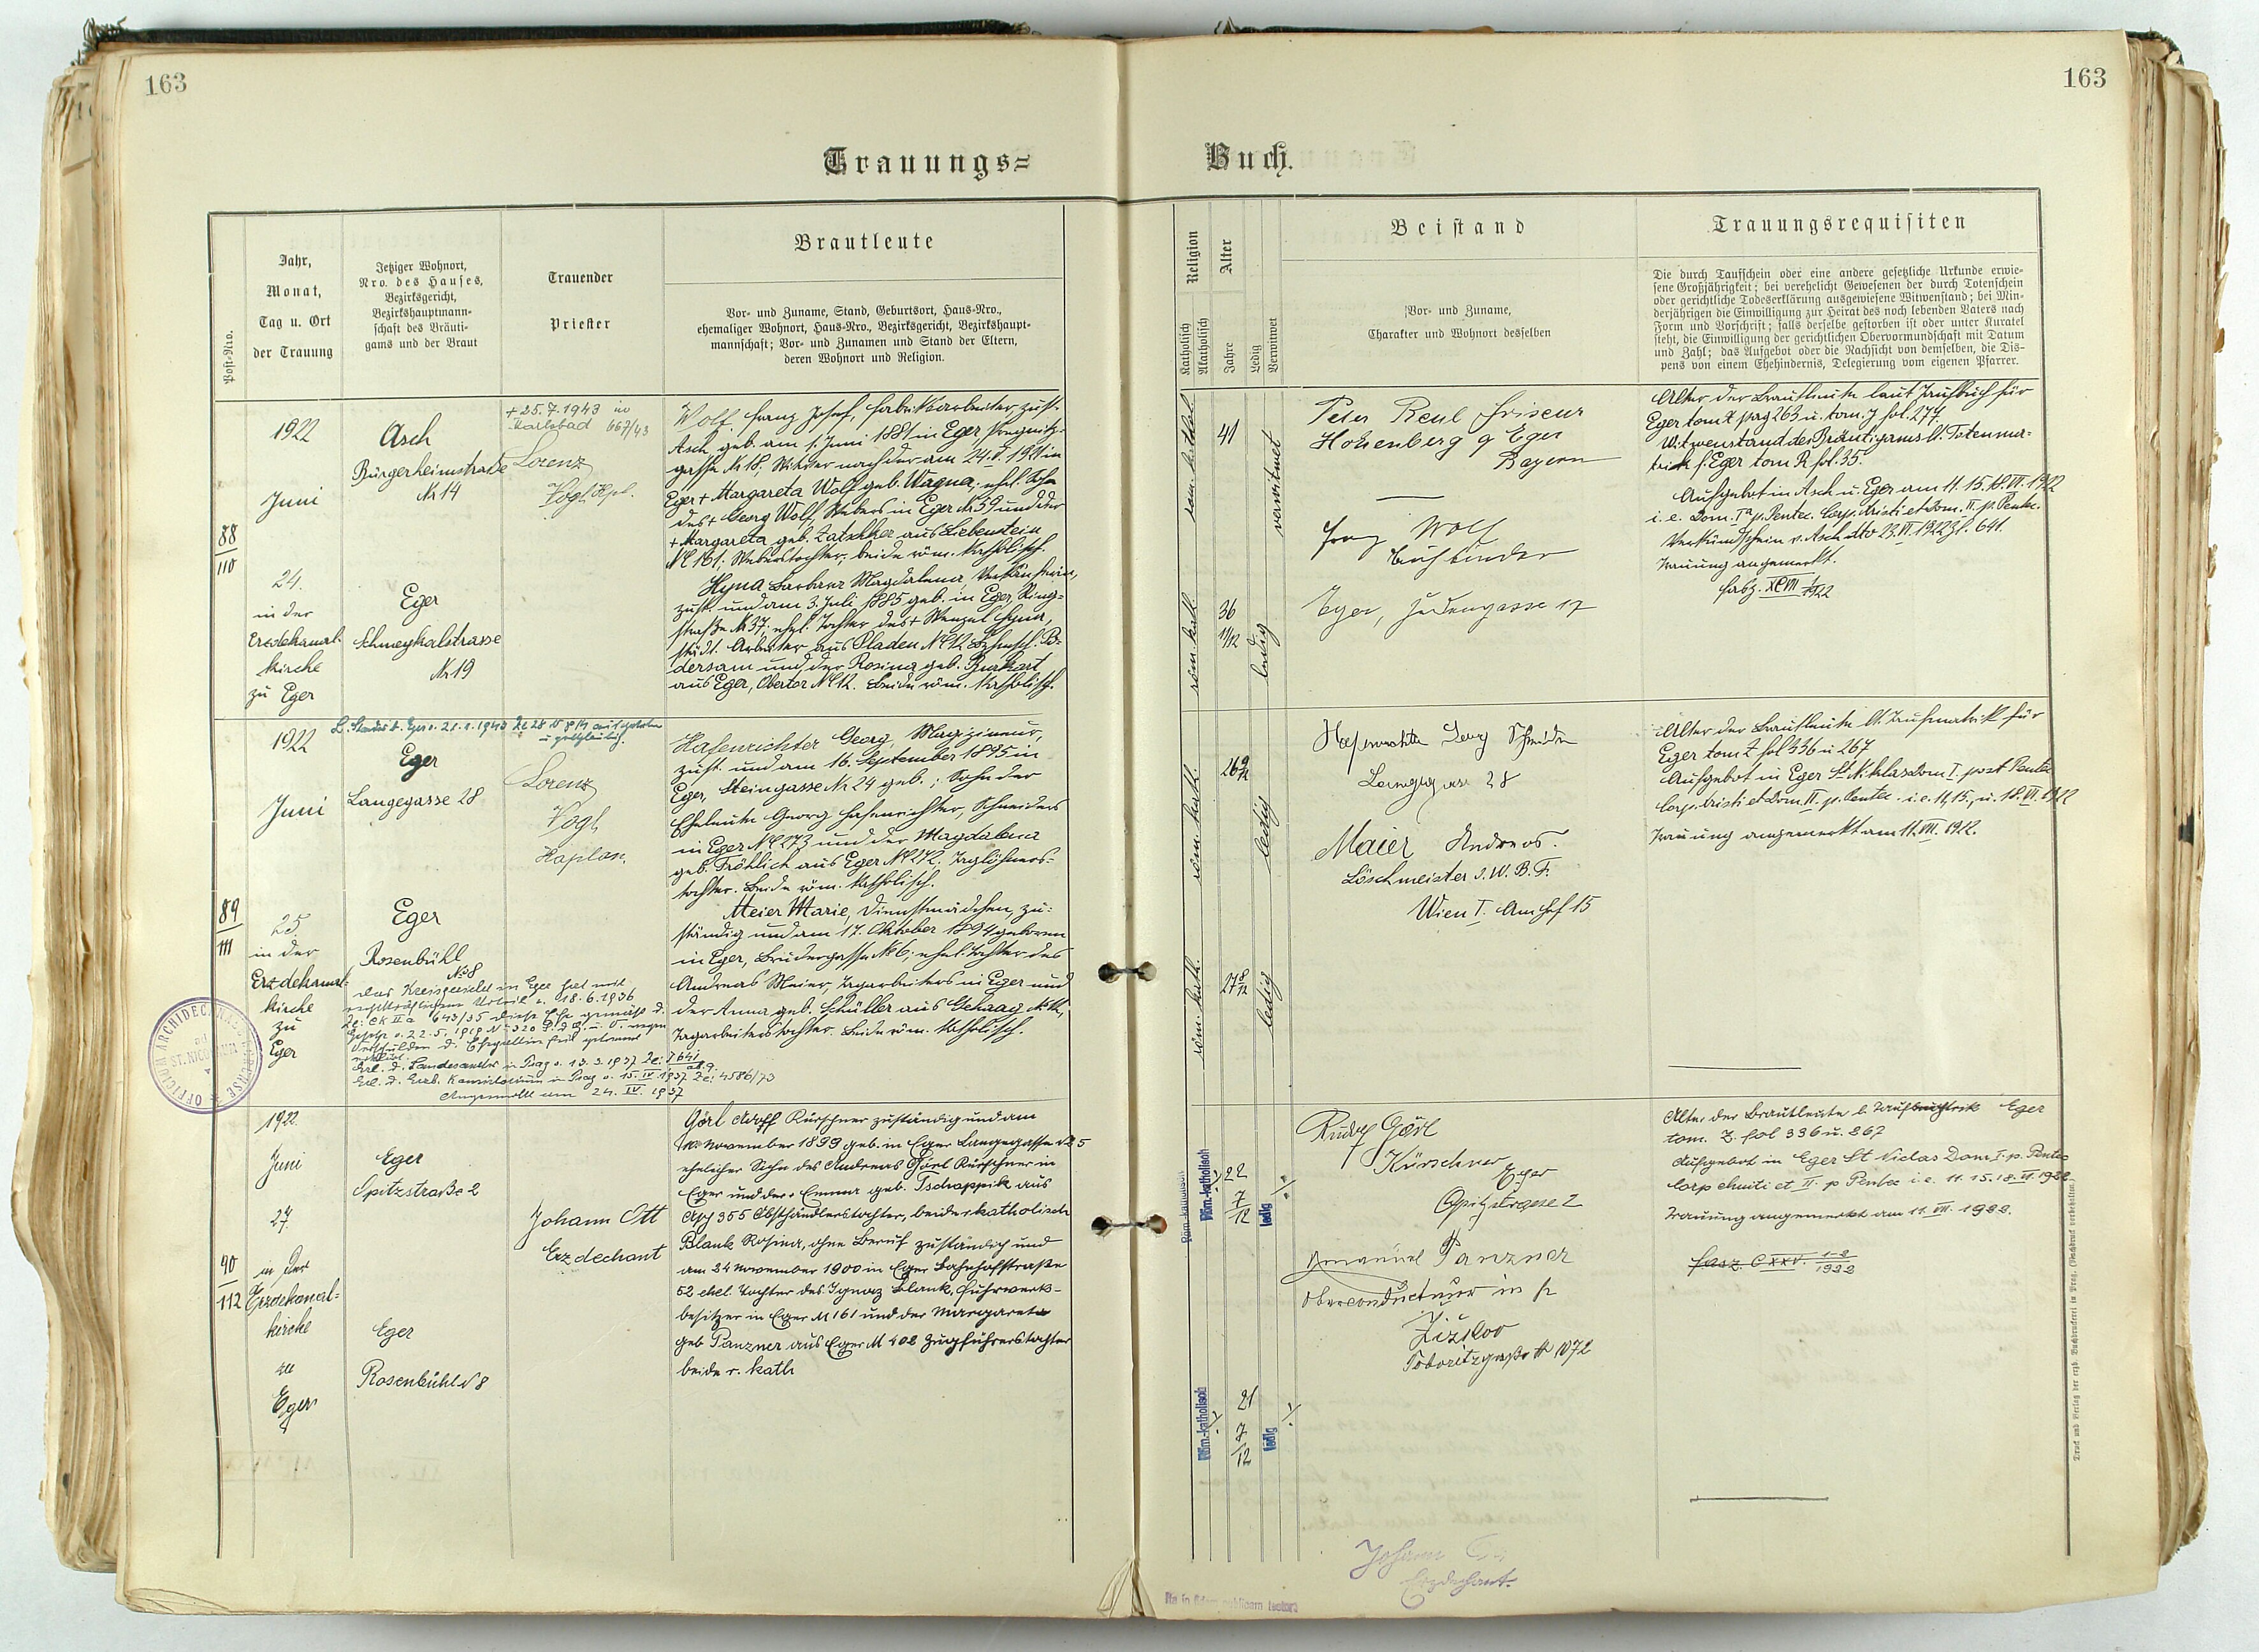 163
163
Trauungs=
Buch.
Post-Nro.
Jahr,
Monat,
Tag u. Ort
der Trauung
Jetziger Wohnort,
Nro. des Hauses,
Bezirksgericht,
Bezirkshauptmann-
schaft des Bräuti-
gams und der Braut
Trauender
Priester
Brautleute
Vor- und Zuname, Stand, Geburtsort, Haus-Nro.,
ehemaliger Wohnort, Haus-Nro., Bezirksgericht, Bezirkshaupt-
mannschaft; Vor- und Zunamen und Stand der Eltern,
deren Wohnort und Religion.
Religion
Katholisch
Akatholisch
Alter
Jahre
Ledig
Verwitwet
Beistand
Vor- und Zuname,
Charakter und Wohnort desselben
Trauungsrequisiten
Die durch Taufschein oder eine andere gesetzliche Urkunde erwie-
sene Großjährigkeit; bei verehelicht Gewesenen der durch Totenschein
oder gerichtliche Todeserklärung ausgewiesene Witwenstand; bei Min-
derjährigen die Einwilligung zur Heirat des noch lebenden Vaters nach
Form und Vorschrift; falls derselbe gestorben ist oder unter Kuratel
steht, die Einwilligung der gerichtlichen Obervormundschaft mit Datum
und Zahl; das Aufgebot oder die Nachsicht von demselben, die Dis-
pens von einem Ehehindernis, Delegierung vom eigenen Pfarrer.
88
110
1922
Juni
24.
in der
Erzdekanal-
kirche
zu Eger
Asch
Bürgerheimstraße
№ 14
Eger
Schmeykalstrasse
№ 19
+ 25.7.1943 in
Karlsbad 667/43
Lorenz
Vogl, Kpl.
Wolf, Franz Josef, Fabriksarbeiter, zust.
Asch, geb. am 1. Juni 1881 in Eger
gasse № 18. Witwer nach der am 24. V. 1921 in
Eger + Margareta Wolf geb. Wagna; ehel. Sohn
des + Georg Wolf, Webers in Eger № 59 und der
+ Margareta geb. Zatschker aus Liebenstein
№ 161; Weberstochter; beide röm. katholisch.
Hyna Barbara Magdalena, Verkäuferin,
zust. und am 3. Juli 1885 geb. in Eger, Ring=
straße № 37. ehel. Tochter des + Wenzel Hyna,
städt. Arbeiter aus Pladen № 12 Bzhmsch. Po-
dersam und der Rosina geb. Burkart
aus Eger, Obertor № 12. Beide röm. katholisch.
röm. kathol.
41
verwitwet
röm. kath.
36
11/12
ledig
Peter Reul Friseur
Hohenberg a Eger
Bayern
Wolf
Buchbinder
Eger, Judengasse 17
Alter der Brautleute laut Taufbuch für
Eger tom Z pag 263 u. tom. Z fol. 277
Witwenstand des Bräutigams lt. Totenma-
trik f. Eger tom R fol. 35.
Aufgebot in Asch u. Eger am 11. 15. 18. VI. 1922
i. e. Dom. Iª p. Pentec. Corp. Christi et Dom. II. p. Pentec.
Verkündschein v. Asch dto 23. VI. 1922 Zl. 641.
Trauung angemerkt.
fasz. XCIII 1/1922
89
111
1922
Juni
25.
in der
Erzdekanal-
kirche
zu
Eger
Eger
Langegasse 28
Eger
Rosenbühl
№ 8
Lorenz
Vogl,
Kaplan.
Hafenrichter Georg, Magazineur,
zust. und am 16. September 1895 in
Eger, Steingasse № 24 geb.; Sohn der
Eheleute Georg Hafenrichter, Schneiders
in Eger № 273 und der Magdalena
geb. Fröhlich aus Eger № 272. Taglöhners-
tochter. Beide röm. katholisch.
Meier Marie, Dienstmädchen, zu=
ständig und am 17. Oktober 1894 geboren
in Eger, Brudergasse № 6; ehel. Tochter des
Andreas Meier, Tagarbeiters in Eger und
der Anna geb. Schüller aus Gehaag №
Tagarbeiterstochter. Beide röm. katholisch.
Das Kreisgericht in Eger hat mit
rechtskräftigem Urteil v. 18.6.1936
Zl: Ck IIa 643/35 diese Ehe gemäß d.
Gesetze v. 22.5.1919 № 320
Erl. d. Landesamtes in Prag v. 13.3.1937
Erl. d. Erzb. Konsistorium in Prag v. 15. IV. 1937 Zl: 4586/73
Angemerkt am 24. IV. 1937
röm. kath.
26 9/12
ledig
röm. kath.
27 8/12
ledig
Hafenrichter Georg Schneider
Langegasse 28
Maier Andreas.
Löschmeister d. W. B. F.
Wien I. Am Hof 15
Alter der Brautleute lt. Taufmatrik für
Eger tom Z fol 336 u 267
Aufgebot in Eger St. Niklas Dom I. post Pentec
Corp. Christi et Dom. II. p. Pentec. i. e. 11, 15., u. 18. VI. 1922
Trauung angemerkt am 11. VII. 1922.
90
112
1922
Juni
27.
in der
Erzdekanal=
kirche
zu
Eger
Eger
Opitzstraße 2
Eger
Rosenbühl № 8
Johann Ott
Erzdechant
Görl Adolf Kürschner zuständig und am
November 1899 geb. in Eger Langegasse № 5
ehelicher Sohn des Andreas Görl Kürschner in
Eger und der + Emma geb. Tschappik aus
Asch 355 Obsthändlerstochter, beide r. katholisch
Blank Rosina, ohne Beruf zuständig und
am 24 November 1900 in Eger Bahnhofstraße
52 ehel. Tochter des Ignaz Blank, Fuhrwerks-
besitzer in Eger № 161 und der Margareta
geb Panzner aus Eger № 402 Zugführerstochter
beide r. kath
Röm.-katholisch
22
7
12
ledig
Röm.-katholisch
21
7
12
ledig
Rudolf Görl
Kürschner
Eger
Opitzstrasse 2
Emanuel Panzner
Oberconducteur in P.
Žižkov
Taboritzgasse № 1072
Alter der Brautleute l. Taufmatrik Eger
tom. Z. fol 336 u. 267
Aufgebot in Eger St Niclas Dom I. p. Pentec
Corp Christi et II. p Pentec i. e. 11. 15. 18. VI. 1922
Trauung angemerkt am 11. VII. 1922.
fasz. CXXV. 1-2/1922
Johann Ott
Erzdechant.
Druck und Verlag der erzb. Buchdruckerei in Prag. (Nachdruck verboten.)